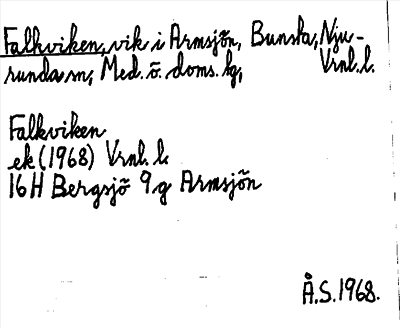 Falkviken, vik i Armsjön, Bunsta, Nju-
runda sn, Med. ö. doms. hg, Vrnl. l.
Falkviken
ek (1968) Vrnl. l.
16 H Bergsjö 9 g Armsjön
Å.S. 1968.